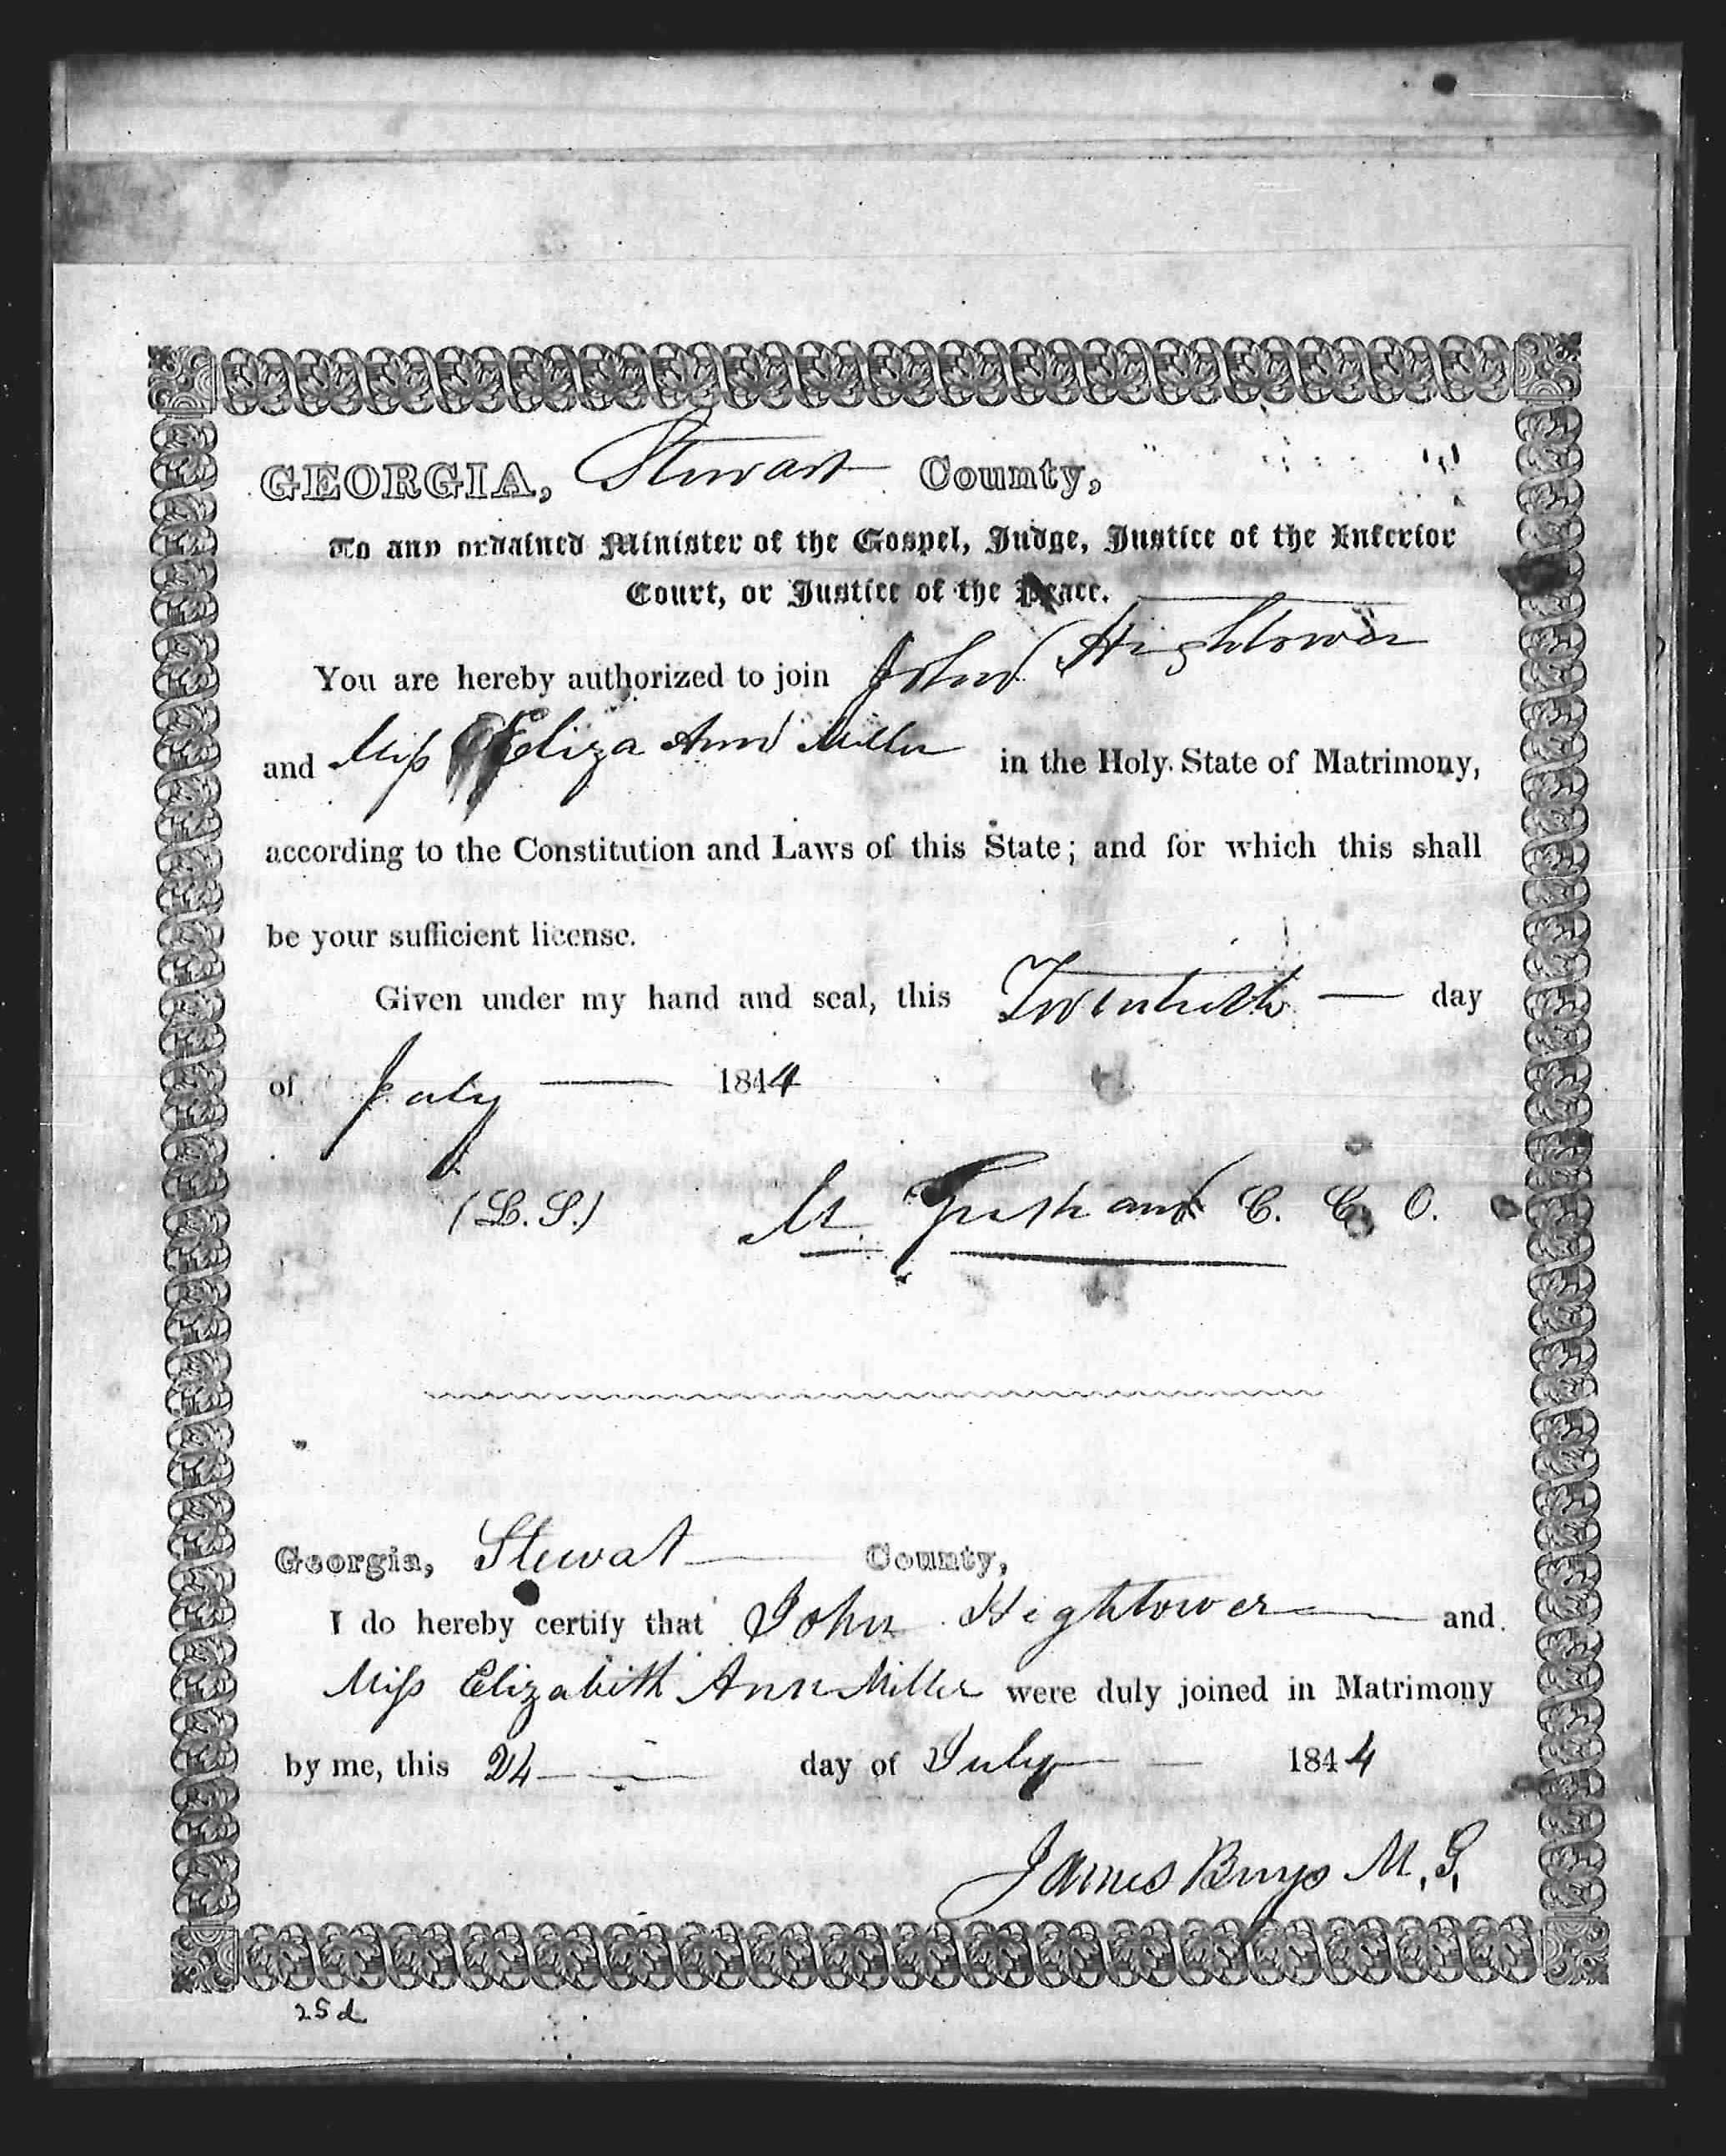 GEORGIA, Stewart County,
To any ordained Minister of the Gospel, Judge, Justice of the Inferior
Court, or Justice of the Peace.
You are hereby authorized to join John Hightower
and Miss Eliza Ann Miller in the Holy State of Matrimony,
according to the Constitution and Laws of this State; and for which this shall
be your sufficient license.
Given under my hand and seal, this Twentieth — day
of July — 1844
(L. S.) M. Gresham C. C. O.
Georgia, Stewat County,
I do hereby certify that John Hightower — and
Miss Elizabeth Ann Miller were duly joined in Matrimony
by me, this 24 — day of July — 1844
James M. G.
25d